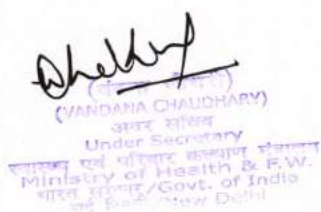 (VANDANA CHAUDHARY)
अवर सचिव
Under Secretary
स्वास्थ्य एवं परिवार कल्याण मंत्रालय
Ministry of Health & F.W.
भारत सरकार/Govt. of India
नई दिल्ली/New Delhi